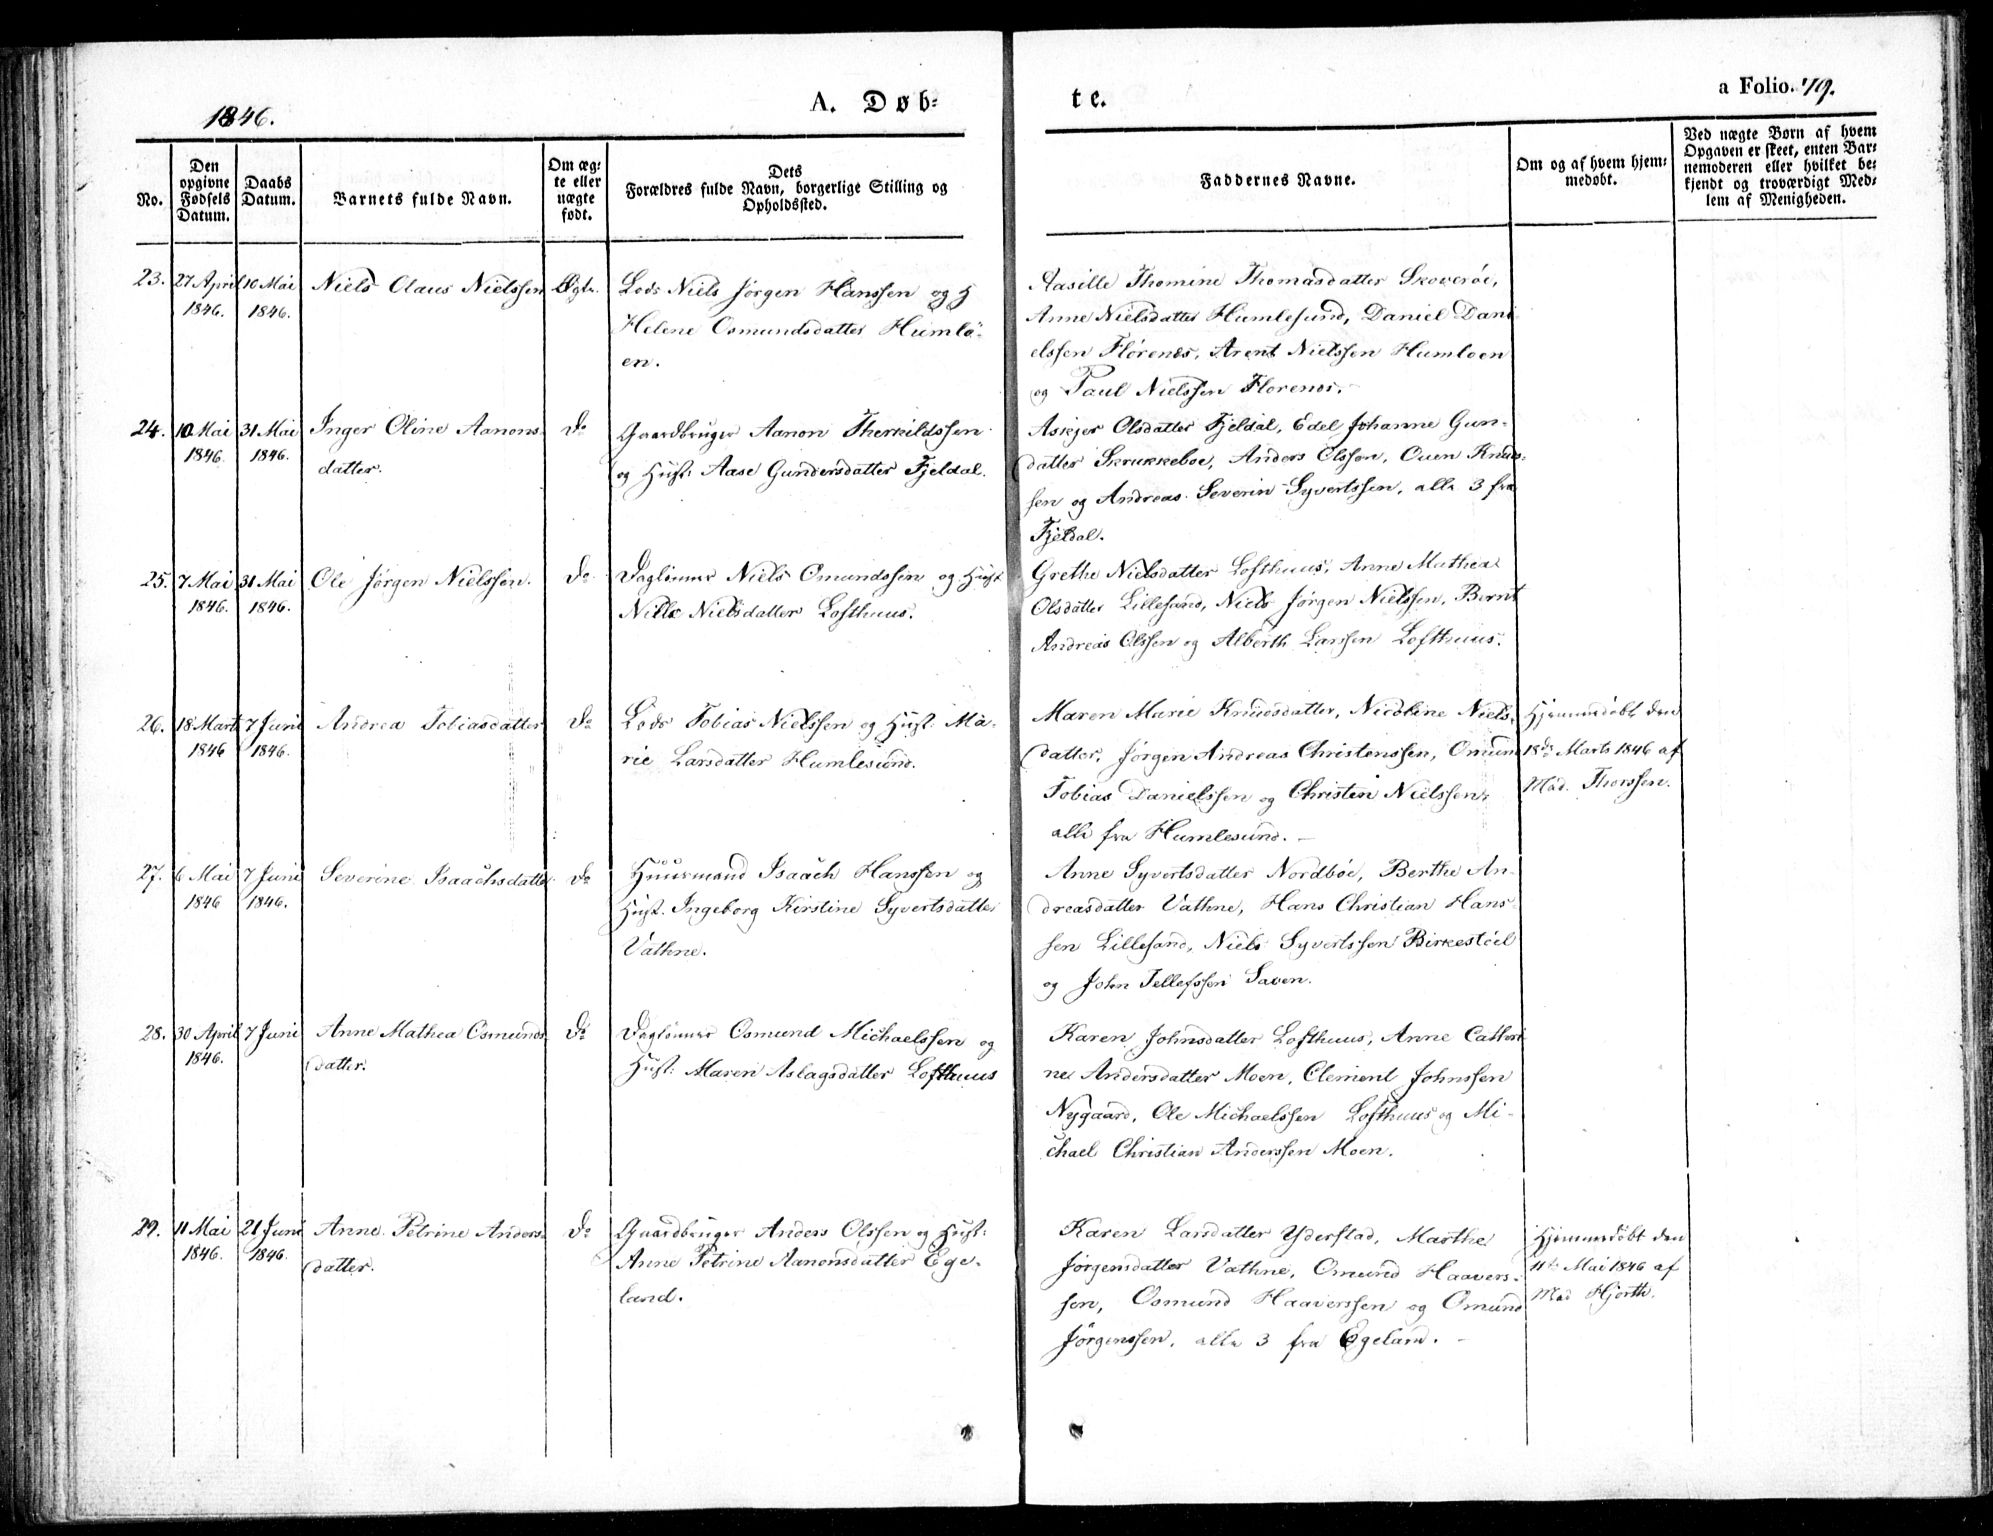 1846.
A. Døb-
te.
a Folio. 79.
No.
Den opgivne Fødsels Datum.
Daabs Datum.
Barnets fulde Navn.
Om ægte eller nægte født.
Dets Forældres fulde Navn, borgerlige Stilling og Opholdssted.
Faddernes Navne.
Om og af hvem hjemmedøbt.
Ved nægte Børn af hvem Opgaven er skeet, enten Barnemoderen eller hvilket bekjendt og troværdigt Medlem af Menigheden.
23. 27 April 10 Mai Niels Claus Nielssen Ægte. Lods Niels Jørgen Hanssen og H
1846. 1846.
Helene Osmundsdatter Humlö-
en.
Aasille Thomine Thomasdatter Skoverøe,
Anne Nielsdatter Humlesund, Daniel Dani
elssen Flørenes, Arent Nielssen Humloen
og Paul Nielssen Florenes.
24. 10 Mai 31 Mai Inger Oline Aanons- Do Gaardbruger Aanon Therkildssen
1846. 1846. datter.
og Hust: Aase Gundersdatter Fjeldal.
Askjer Olsdatter Fjeldal, Edel Johanne Gun-
datter Skrukkeboe, Anders Olssen, Ouen Knud-
sen og Andreas Severin Syvertssen, alle 3 fra
Fjeldal.
25. 7 Mai 31 Mai Ole Jørgen Nielssen. Do Daglönner Niels Omundssen og Hust
1846. 1846.
Nille Nielsdatter Lofthuus.
Grethe Nielsdatter Lofthuus, Anne Mathea
Olsdatter Lillesand, Niels Jørgen Nielssen, Bernt
Andreas Olssen og Alberth Larssen Lofthuus.
26. 18 Marts 7 Juni Andrea Tobiasdatter Do Lods Tobias Nielssen og Hust. Ma-
1846 1846.
rie Larsdatter Humlesund.
Maren Marie Knudsdatter, Nicoline Niels-
datter, Jørgen Andreas Christenssen, Omund
Tobias Danielssen og Christen Nielssen,
alle fra Humlesund. –
Hjemmedøbt den
18de Marts 1846 af
Mad. Thorssen.
27. 6 Mai 7 Juni Severine Isaachsdatter Do Huusmand Isaach Hanssen og
1846 1846.
Hust. Ingeborg Kirstine Syvertsdatter
Vathne.
Anne Syvertsdatter Nordbøe, Berthe An-
dreasdatter Vathne, Hans Christian Hans-
sen Lillesand, Niels Syvertssen Birkestöel
og John Tellefssen Saven.
28. 30 April 7 Juni Anne Mathea Osmunds Do Daglönner Osmund Michaelssen og
1846. datter.
Hust: Maren Aslagsdatter Lofthuus
Karen Johnsdatter Lofthuus, Anne Cathri
ne Andersdatter Moen, Clement Johnssen
Nygaard, Ole Michaelssen Lofthuus og Mi-
chael Christian Anderssen Moen.
29. 11 Mai 21 Juni Anne Petrine Anders- Do Gaardbruger Anders Olssen og Hust:
1846. 1846. datter.
Anne Petrine Aanonsdatter Ege-
land.
Karen Larsdatter Yderstad, Marthe
Jørgensdatter Vathne, Omund Haavers-
sen, Osmund Haaverssen og Omund
Jörgenssen, alle 3 fra Egeland. –
Hjemmedøbt den
11te Mai 1846 af
Mad Hjorth.